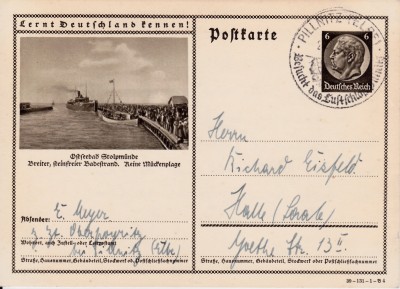 Lernt Deutschland kennen!
Postkarte
PILLNITZ (ELBE)
Besucht das Luftschloß
6 6
Deutsches Reich
Ostseebad Stolpmünde
Breiter, steinfreier Badestrand. Keine Mückenplage
Absender: E. Meyer
z. Zt. Oberpoyritz
Wohnort, auch Zustell- oder Leitpostamt
bei Pillnitz (Elbe)
Straße, Hausnummer, Gebäudeteil, Stockwerk oder Postschließfachnummer
Herrn
Richard Eisfeld
Halle (Saale)
Goethe Str. 13 II
Straße, Hausnummer, Gebäudeteil, Stockwerk oder Postschließfachnummer
38-131-1-B 4